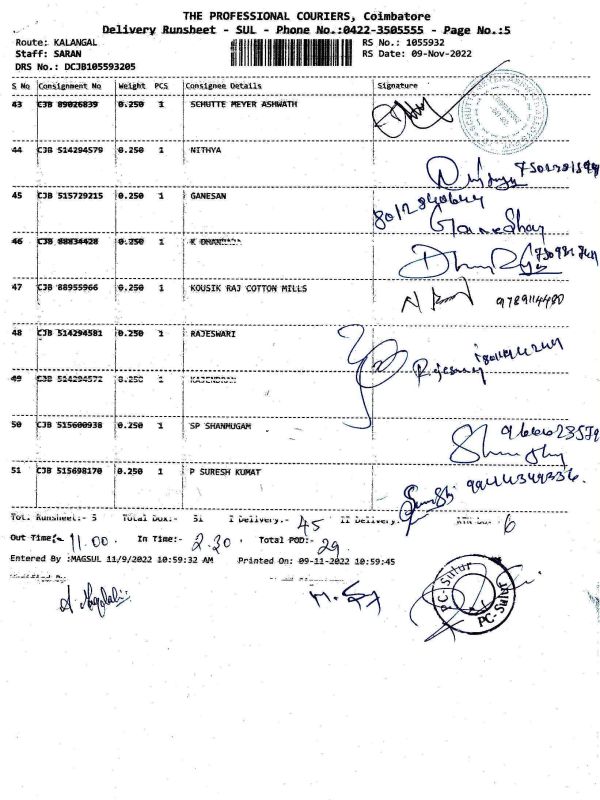 THE PROFESSIONAL COURIERS, Coimbatore
Delivery Runsheet - SUL - Phone No.:0422-3505555 - Page No.:5
Route: KALANGAL RS No.: 1055932
Staff: SARAN RS Date: 09-Nov-2022
DRS No.: DCJB105593205
S No Consignment No Weight PCS Consignee Details Signature
43 CJB 89026839 0.250 1 SCHUTTE MEYER ASHWATH
44 CJB 514294579 0.250 1 NITHYA
45 CJB 515729215 0.250 1 GANESAN
46 CJB 88834428 0.250 1 K
47 CJB 88955966 0.250 1 KOUSIK RAJ COTTON MILLS
9789114480
48 CJB 514294581 0.250 1 RAJESWARI
49 CJB 514294572 0.250 1
50 CJB 515600938 0.250 1 SP SHANMUGAM
51 CJB 515698170 0.250 1 P SURESH KUMAT
9944349336.
Tot. Runsheet:- 5 Total Dox:- 51 I Delivery.- 45 II Delivery. 6
Out Time:- 11.00. In Time:- 2.30. Total POD:- 29
Entered By :MAGSUL 11/9/2022 10:59:32 AM Printed On: 09-11-2022 10:59:45
PC-Sulur
PC-Sulur